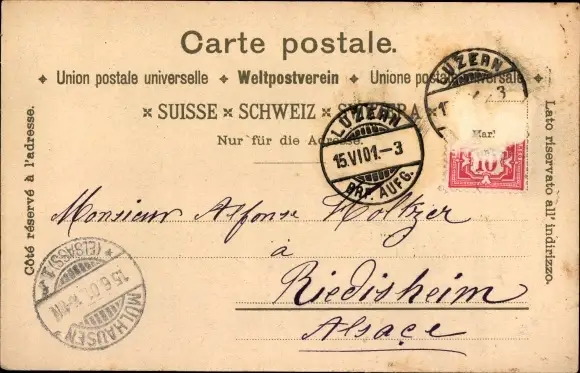 Carte postale.
✦ Union postale universelle ✦ Weltpostverein ✦ Unione postale universale ✦
✕ SUISSE ✕ SCHWEIZ ✕
Nur für die Adresse.
Côté réservé à l'adresse.
Lato riservato all' indirizzo.
LUZERN
LUZERN
15.VI01.–3
BRF. AUFG.
Mar
10
Monsieur Alfonse Holtzer
à
Riedisheim
Alsace
MÜLHAUSEN
(ELSASS) 1
15.6.01